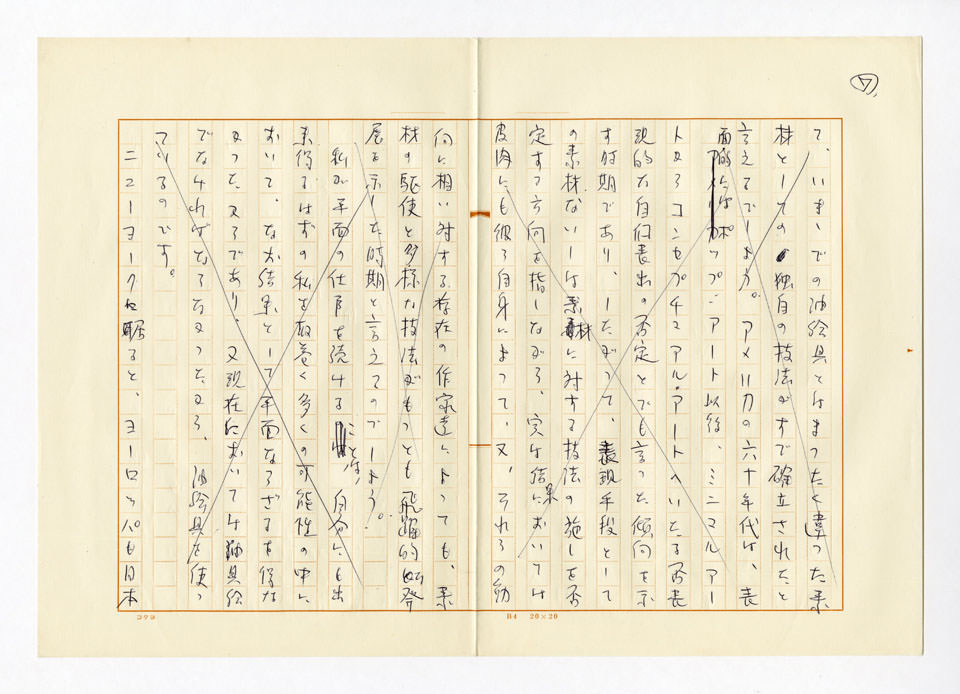 7,
て、いままでの油絵具とはまったく違った素
材としての独自の技法がすで確立されたと
言えるでしょう。アメリカの六十年代は、表
面的にはポップ・アート以後、ミニマルアー
トからコンセプチュアル・アートへいたる否表
現的な自何表出の否定とでも言った傾向を示
す時期であり、したがって、表現手段として
の素材ないしは素材に対する技法の施しを否
定する方向を指しながら、実は結果においては
皮肉にも彼ら自身によって、又、それらの動
向に相い対する存在の作家達によっても、素
材の駆使と多様な技法がもっとも飛躍的な発
展を示した時期と言えてのでしょう。
私が平面の仕事を続けることは、自分にも出
来得るはずの私を取巻く多くの可能性の中に
おいて、なお結果として平面ならざるを得な
かった、からであり、又現在において油具絵
でなければならなかったから、油絵具を使っ
ているのです。
ニューヨークに居ると、ヨーロッパも日本
コクヨ
B4 20×20